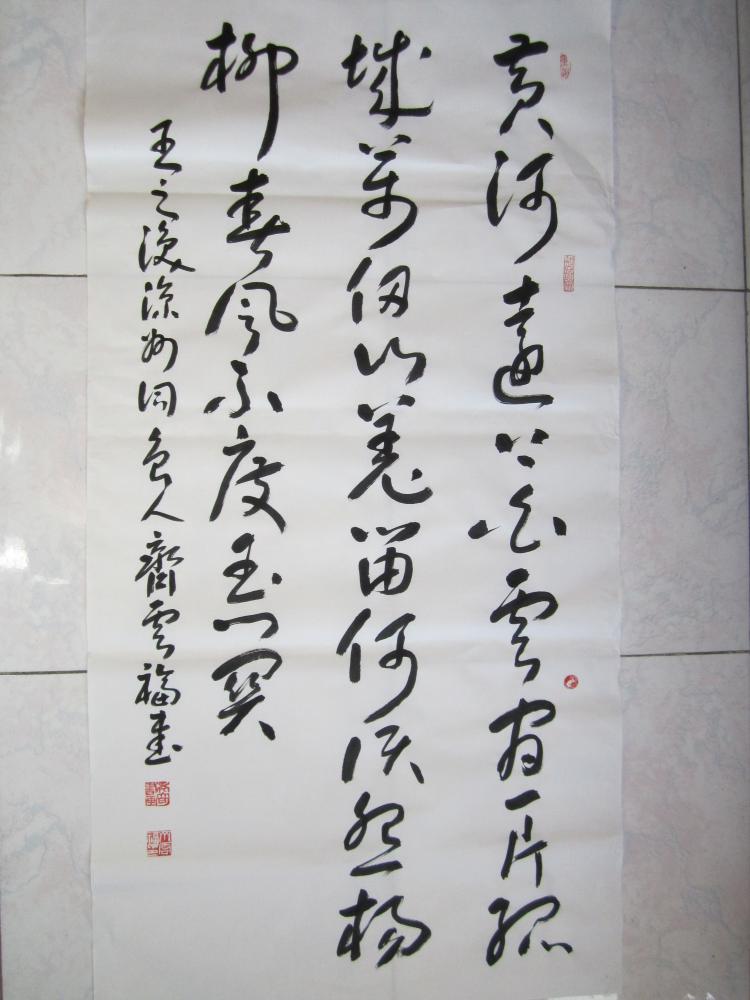 黃河遠上白雲間一片孤
城萬仞山羌笛何須怨楊
柳春風不度玉門關
王之渙涼州詞邑人齊雲福書